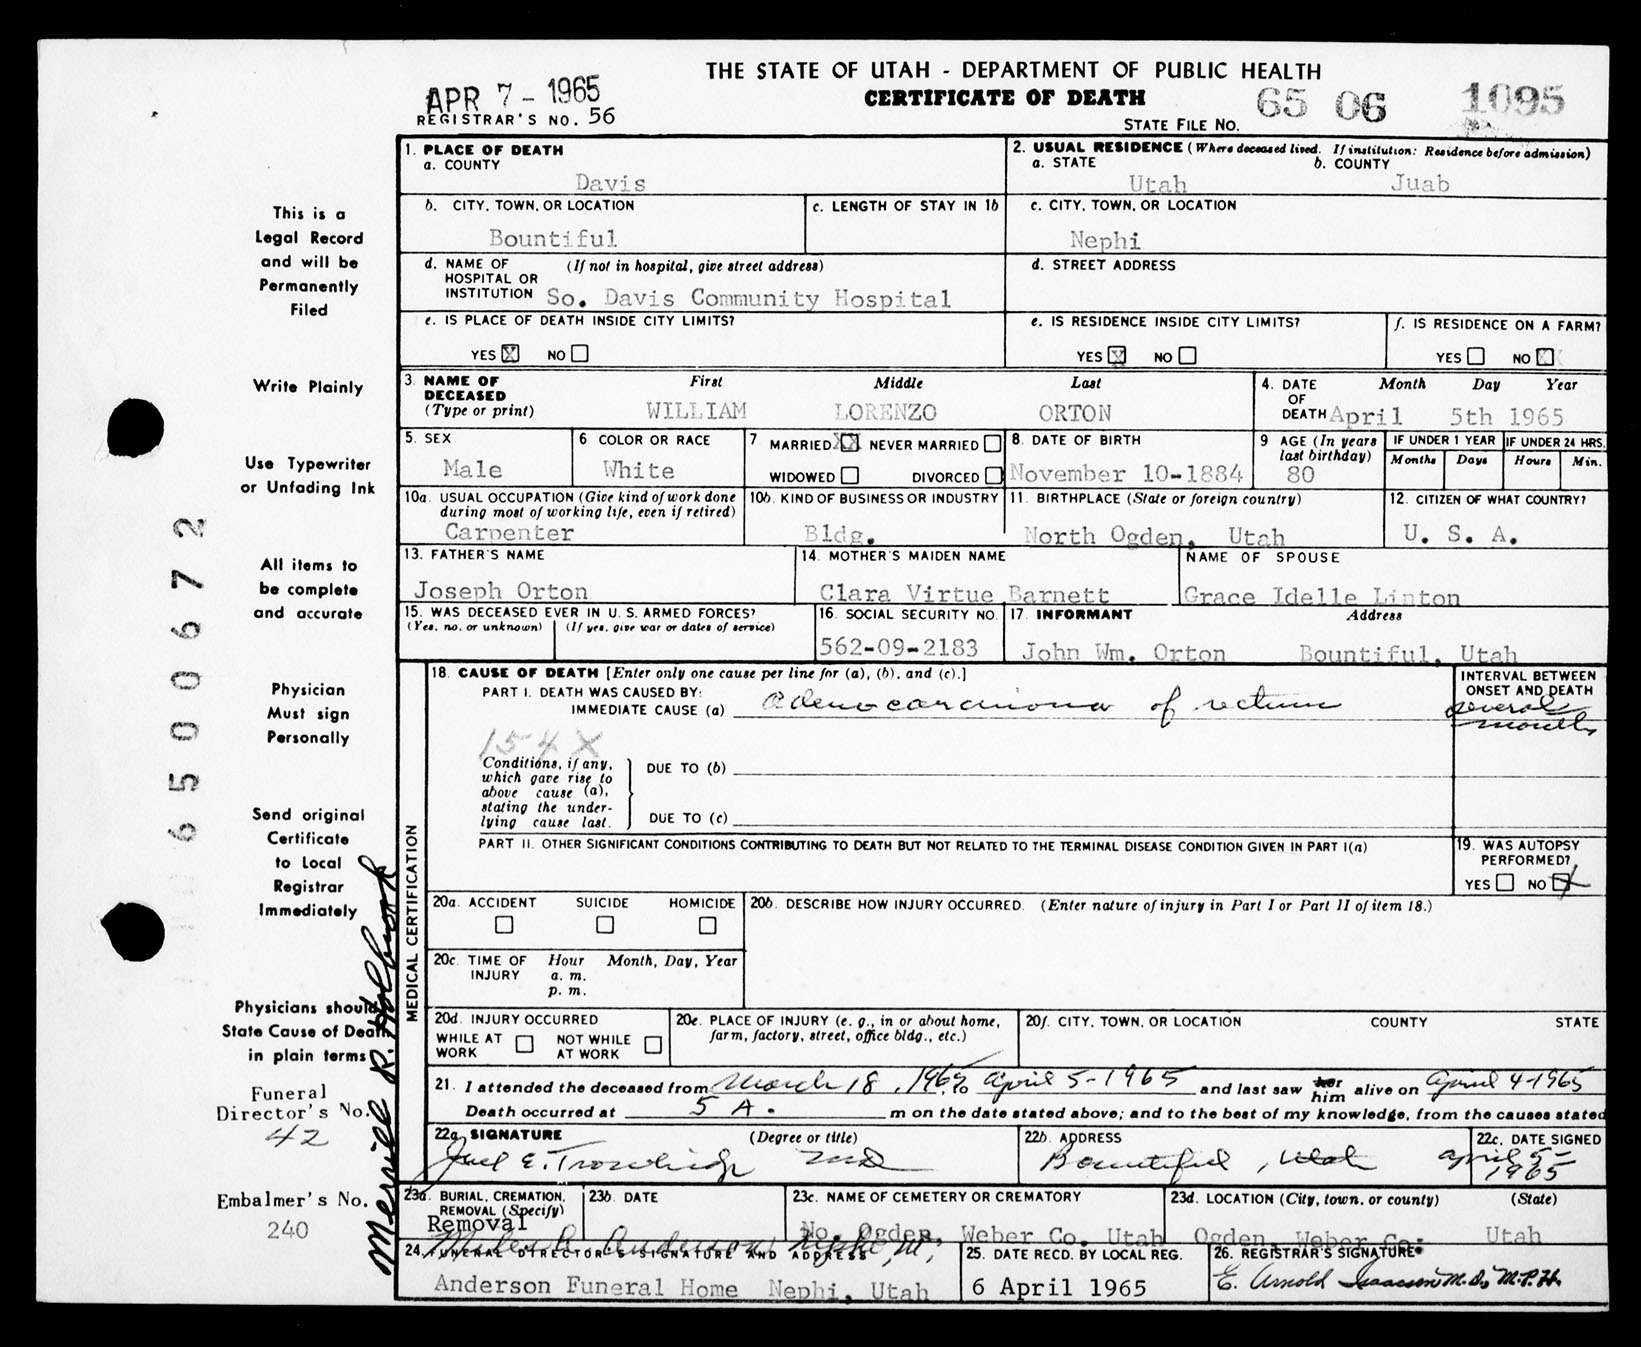 THE STATE OF UTAH - DEPARTMENT OF PUBLIC HEALTH
CERTIFICATE OF DEATH
APR 7 - 1965
REGISTRAR'S NO. 56
STATE FILE NO. 65 06 1095
This is a
Legal Record
and will be
Permanently
Filed
Write Plainly
Use Typewriter
or Unfading Ink
All items to
be complete
and accurate
Physician
Must sign
Personally
Send original
Certificate
to Local
Registrar
Immediately
Physicians should
State Cause of Death
in plain terms
Funeral
Director's No.
42
Embalmer's No.
240
6500672
Merrill R. Holbrook
1. PLACE OF DEATH
a. COUNTY
Davis
2. USUAL RESIDENCE (Where deceased lived. If institution: Residence before admission)
a. STATE b. COUNTY
Utah Juab
b. CITY, TOWN, OR LOCATION
Bountiful
c. LENGTH OF STAY IN 1b
c. CITY, TOWN, OR LOCATION
Nephi
d. NAME OF (If not in hospital, give street address)
HOSPITAL OR
INSTITUTION So. Davis Community Hospital
d. STREET ADDRESS
e. IS PLACE OF DEATH INSIDE CITY LIMITS?
YES X NO
e. IS RESIDENCE INSIDE CITY LIMITS?
YES X NO
f. IS RESIDENCE ON A FARM?
YES NO XX
3. NAME OF First Middle Last
DECEASED
(Type or print) WILLIAM LORENZO ORTON
4. DATE Month Day Year
OF
DEATH April 5th 1965
5. SEX
Male
6 COLOR OR RACE
White
7 MARRIED XX NEVER MARRIED
WIDOWED DIVORCED
8. DATE OF BIRTH
November 10-1884
9 AGE (In years
last birthday)
80
IF UNDER 1 YEAR
Months Days
IF UNDER 24 HRS.
Hours Min.
10a. USUAL OCCUPATION (Give kind of work done
during most of working life, even if retired)
Carpenter
10b. KIND OF BUSINESS OR INDUSTRY
Bldg.
11. BIRTHPLACE (State or foreign country)
North Ogden, Utah
12. CITIZEN OF WHAT COUNTRY?
U. S. A.
13. FATHER'S NAME
Joseph Orton
14. MOTHER'S MAIDEN NAME
Clara Virtue Barnett
NAME OF SPOUSE
Grace Idelle Linton
15. WAS DECEASED EVER IN U. S. ARMED FORCES?
(Yes, no, or unknown) (If yes, give war or dates of service)
16. SOCIAL SECURITY NO.
562-09-2183
17. INFORMANT Address
John Wm. Orton Bountiful, Utah
MEDICAL CERTIFICATION
18. CAUSE OF DEATH [Enter only one cause per line for (a), (b), and (c).]
PART I. DEATH WAS CAUSED BY:
IMMEDIATE CAUSE (a) Adenocarcinoma of rectum
INTERVAL BETWEEN
ONSET AND DEATH
several
months
154X
Conditions, if any,
which gave rise to
above cause (a),
stating the under-
lying cause last.
DUE TO (b)
DUE TO (c)
PART II. OTHER SIGNIFICANT CONDITIONS CONTRIBUTING TO DEATH BUT NOT RELATED TO THE TERMINAL DISEASE CONDITION GIVEN IN PART I(a)
19. WAS AUTOPSY
PERFORMED?
YES NO X
20a. ACCIDENT SUICIDE HOMICIDE
20b. DESCRIBE HOW INJURY OCCURRED. (Enter nature of injury in Part I or Part II of item 18.)
20c. TIME OF Hour Month, Day, Year
INJURY a. m.
p. m.
20d. INJURY OCCURRED
WHILE AT NOT WHILE
WORK AT WORK
20e. PLACE OF INJURY (e. g., in or about home,
farm, factory, street, office bldg., etc.)
20f. CITY, TOWN, OR LOCATION COUNTY STATE
21. I attended the deceased from March 18, 1965, to April 5-1965 and last saw her him alive on April 4-1965
Death occurred at 5 A. m on the date stated above; and to the best of my knowledge, from the causes stated
22a. SIGNATURE (Degree or title)
Joel E. Trowbridge MD
22b. ADDRESS
Bountiful, Utah
22c. DATE SIGNED
April 5-
1965
23a. BURIAL, CREMATION,
REMOVAL (Specify)
Removal
23b. DATE
23c. NAME OF CEMETERY OR CREMATORY
No. Ogden, Weber Co. Utah
23d. LOCATION (City, town, or county) (State)
Ogden, Weber Co. Utah
24. FUNERAL DIRECTOR'S SIGNATURE AND ADDRESS
Anderson Nephi, Ut,
Anderson Funeral Home Nephi, Utah
25. DATE RECD. BY LOCAL REG.
6 April 1965
26. REGISTRAR'S SIGNATURE
E. Arnold Isaacson M.D., M.P.H.